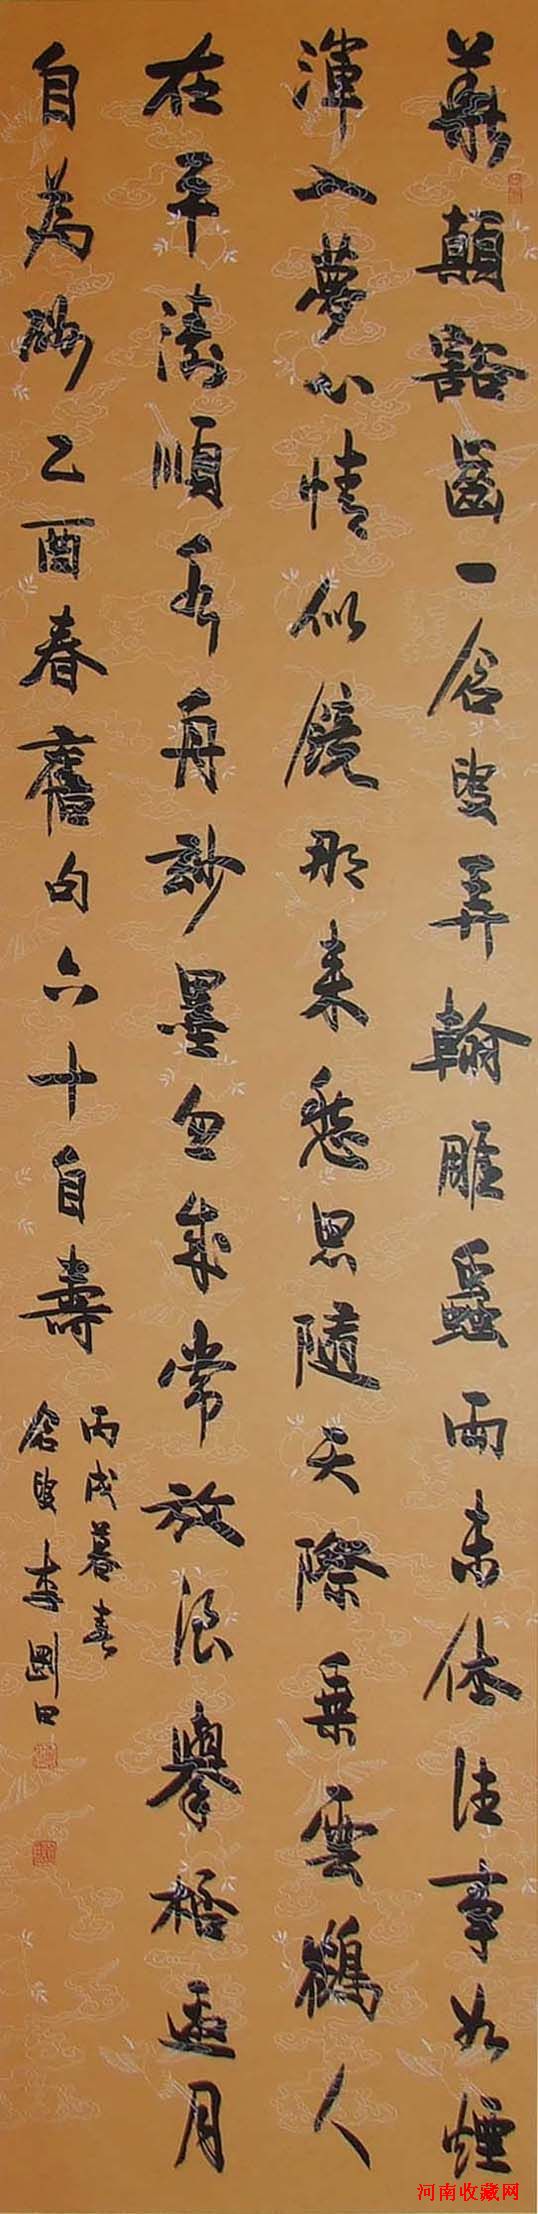 華顛豁齒一含叟弄翰雕蟲兩未休往事如煙
渾入夢心情似鏡那來愁思隨天際乘雲鶴人
在平濤順水舟妙墨忽成常放浪舉桮邀月
自為酬乙酉春舊句六十自壽
丙戌暮春
含叟李剛田
河南收藏网